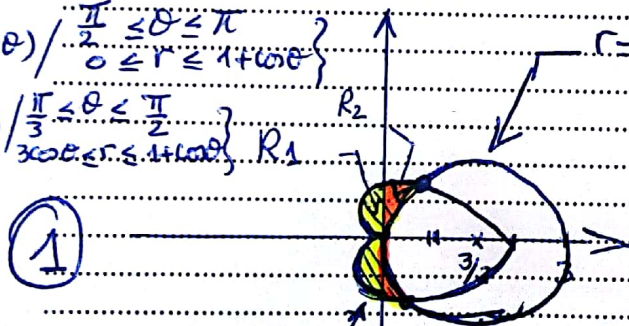 θ) / π/2 ≤ θ ≤ π
0 ≤ r ≤ 1+cosθ }
/ π/3 ≤ θ ≤ π/2
3cosθ ≤ r ≤ 1+cosθ }
R1
R2
r=
1
3/2
3